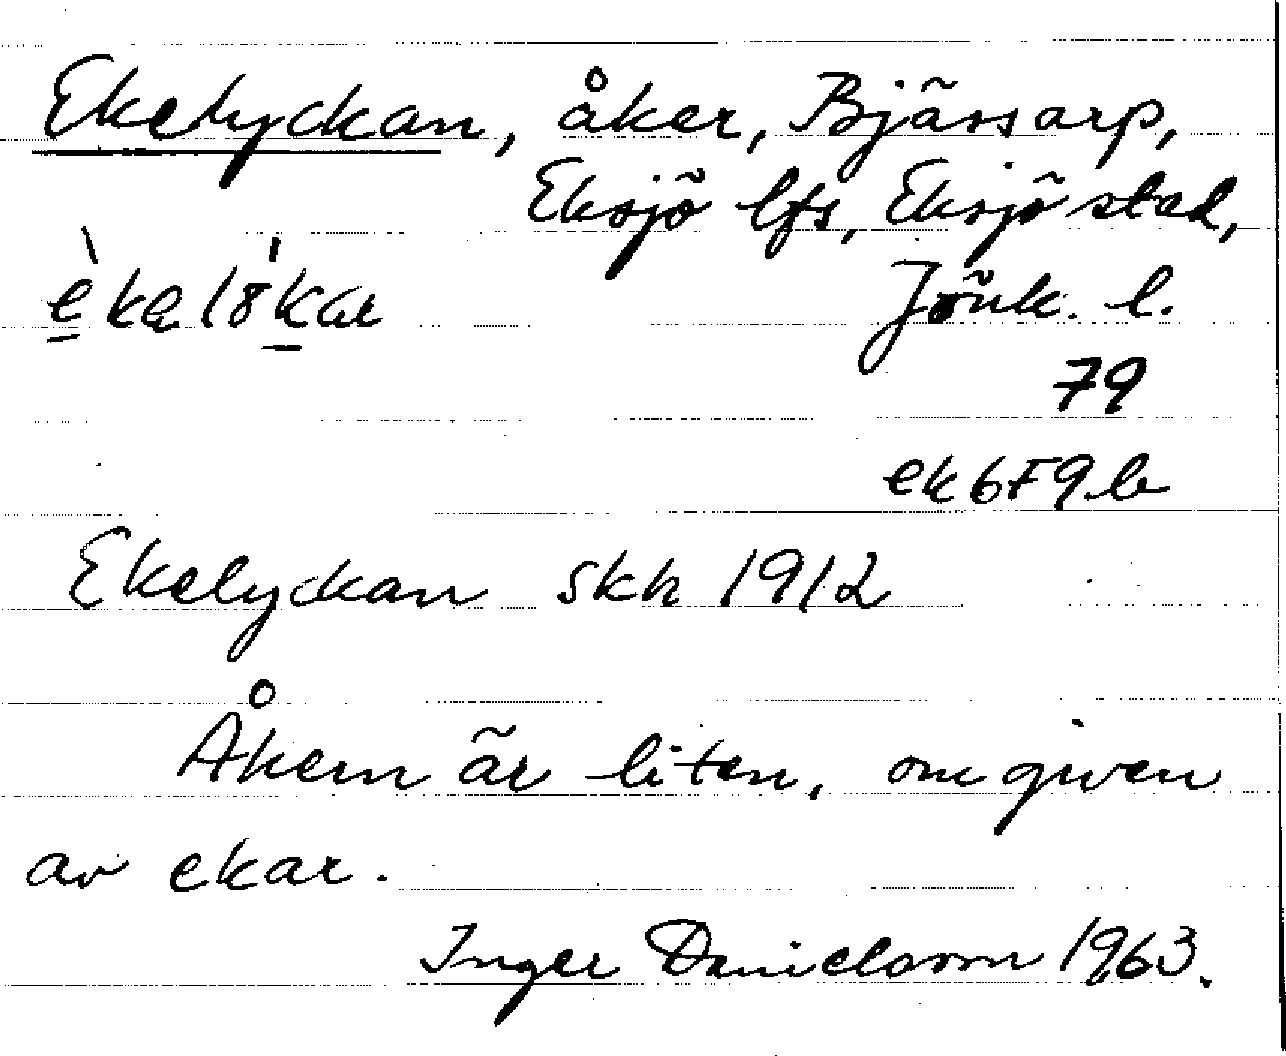 Ekelyckan, åker, Bjässarp,
Eksjö lfs, Eksjö stad,
Jönk. l.
79
ek 6F9b
Ekelyckan skh 1912
Åkern är liten, omgiven
av ekar.
Inger Danielsson 1963.